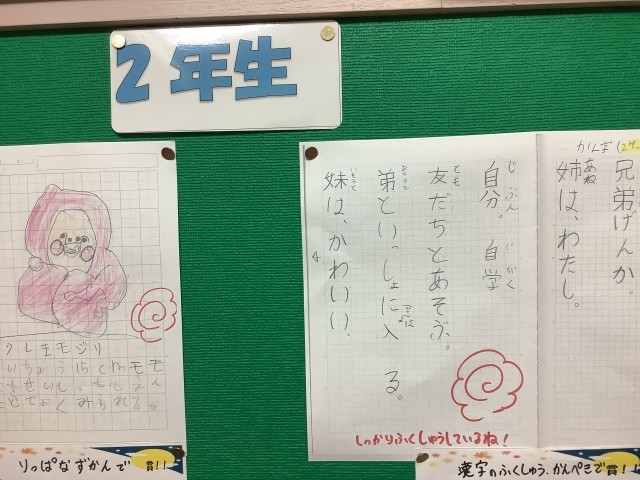 2年生
クルミモジリ
りっぱなずかんで賞!!
かんじ
兄弟げんか。
姉は、わたし。
あね
自分。自学
じぶん。じがく
友だちとあそぶ。
とも
弟といっしょに入る。
おとうと
妹は、かわいい。
いもうと
しっかりふくしゅうしているね!
漢字のふくしゅう、かんぺきで賞!